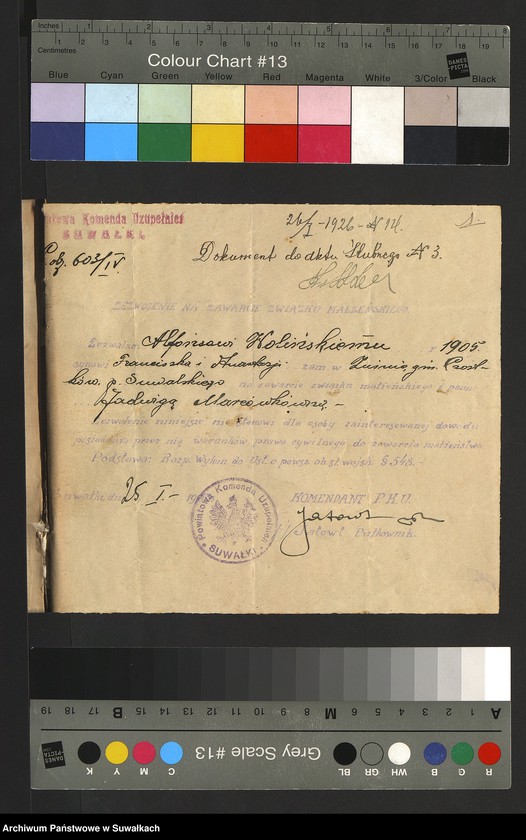 Inches 1 2 3 4 5 6 7 8
Centimetres 1 2 3 4 5 6 7 8 9 10 11 12 13 14 15 16 17 18 19
Colour Chart #13
DANES-PICTA
Blue Cyan Green Yellow Red Magenta White 3/Color Black
Komenda Uzupełnień
SUWAŁKI
26/I-1926-N 14.
1.
603/IV.
Dokument do aktu ślubnego N 3.
ZEZWOLENIE NA ZAWARCIE ZWIĄZKU MAŁŻEŃSKIEGO.
Zezwalam Alfonsowi Kolińskiemu r 1905
synowi Franciszka i Anastazji zam w gm.
p. Suwalskiego na zawarcie związku małżeńskiego z
Jadwigą -
Zezwolenie niniejsze nie stanowi dla osoby zainteresowanej dowodu
posiadania przez nią warunków prawa cywilnego do zawarcia małżeństwa
Podstawa: Rozp. Wykon do Ust. o powsz. ob. sł. wojsk. § 548.-
Suwałki dn. 25. I.-
KOMENDANT P.K.U.
Powiatowa Komenda Uzupełnień
SUWAŁKI
Pułkownik.
19 18 17 16 15 B 14 13 12 11 10 9 8 7 M 6 5 4 3 2 1 A
Grey Scale #13
DANES-PICTA
K Y M C BL GR WH B G R
Archiwum Państwowe w Suwałkach